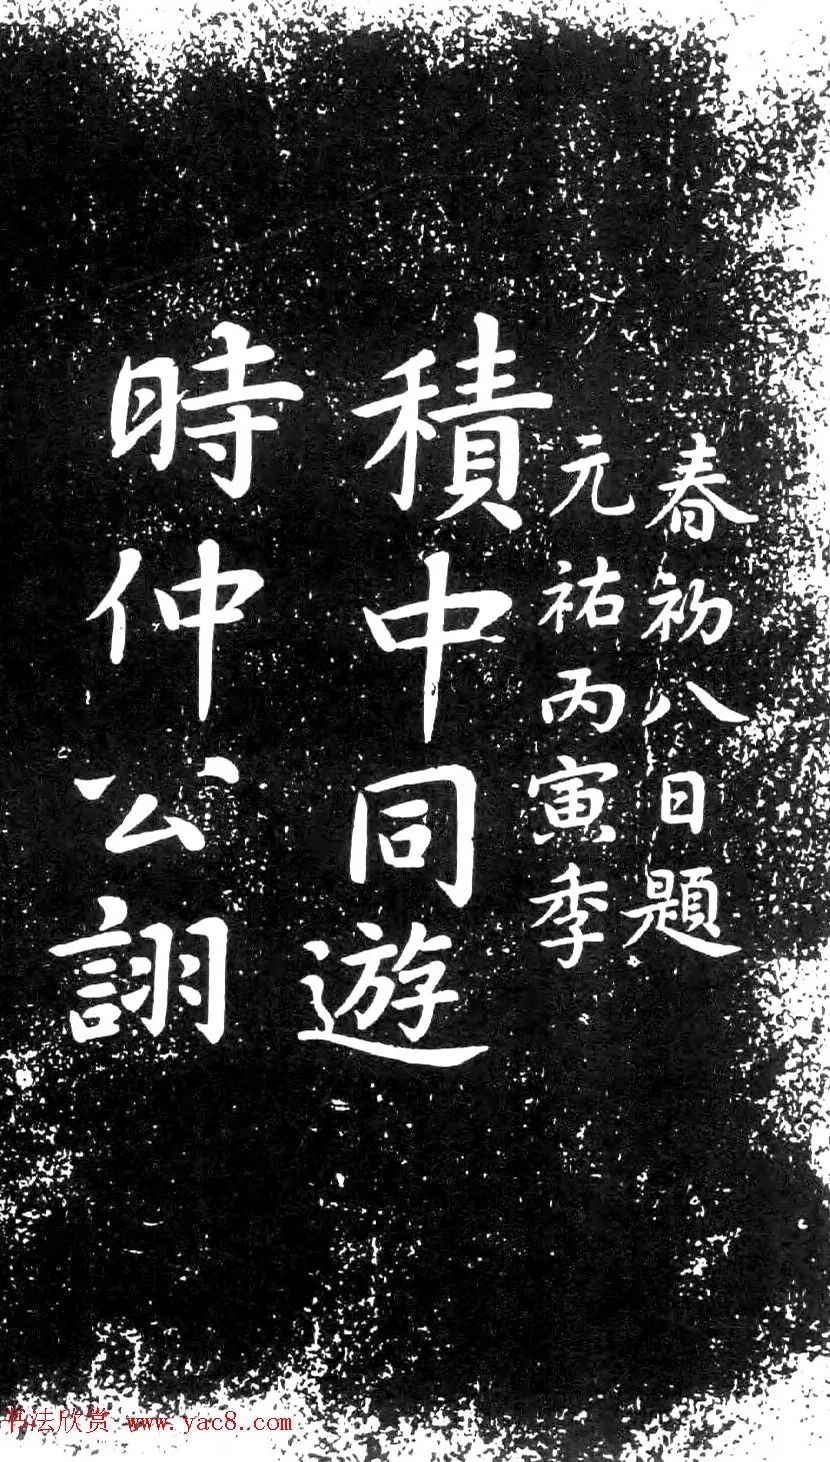 時仲公詡
積中同遊
元祐丙寅季
春初八日題
书法欣赏 www.yac8.com